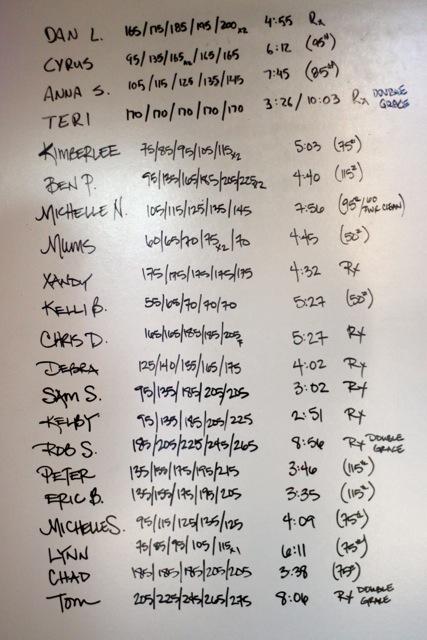 DAN L. 165/175/185/195/200x2 4:55 Rx
CYRUS 95/135/165x2/165/165 6:12 (95#)
ANNA S. 105/115/125/135/145 7:45 (85#)
TERI 170/170/170/170/170 3:26/10:03 Rx DOUBLE GRACE
KIMBERLEE 75/85/95/105/115x2 5:03 (75#)
BEN P. 95/135/165/185/205/225x2 4:40 (115#)
MICHELLE N. 105/115/125/135/145 7:56 (95#/60 PWR CLEAN)
MUMS 60/65/70/75x2/70 4:45 (50#)
XANDY 175/175/175/175/175 4:32 Rx
KELLI B. 55/65/70/70/70 5:27 (50#)
CHRIS D. 165/165/185/185/205F 5:27 Rx
DEBRA 125/140/155/165/175 4:02 Rx
SAM S. 95/135/185/205/205 3:02 Rx
KELBY 95/135/185/205/225 2:51 Rx
ROB S. 185/205/225/245/265 8:56 Rx DOUBLE GRACE
PETER 135/155/175/195/215 3:46 (115#)
ERIC B. 135/155/175/195/205 3:35 (115#)
MICHELLE S. 95/115/125/135/125 4:09 (75#)
LYNN 75/85/95/105/115x1 6:11 (75#)
CHAD 185/185/185/205/205 3:38 (75#)
TOM 205/225/245/265/275 8:06 Rx DOUBLE GRACE